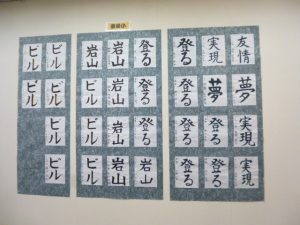 友情
夢
実現
実現
実現
夢
登る
登る
登る
登る
登る
登る
登る
登る
登る
岩山
岩山
岩山
岩山
岩山
岩山
ビル
ビル
ビル
ビル
ビル
ビル
ビル
ビル
ビル